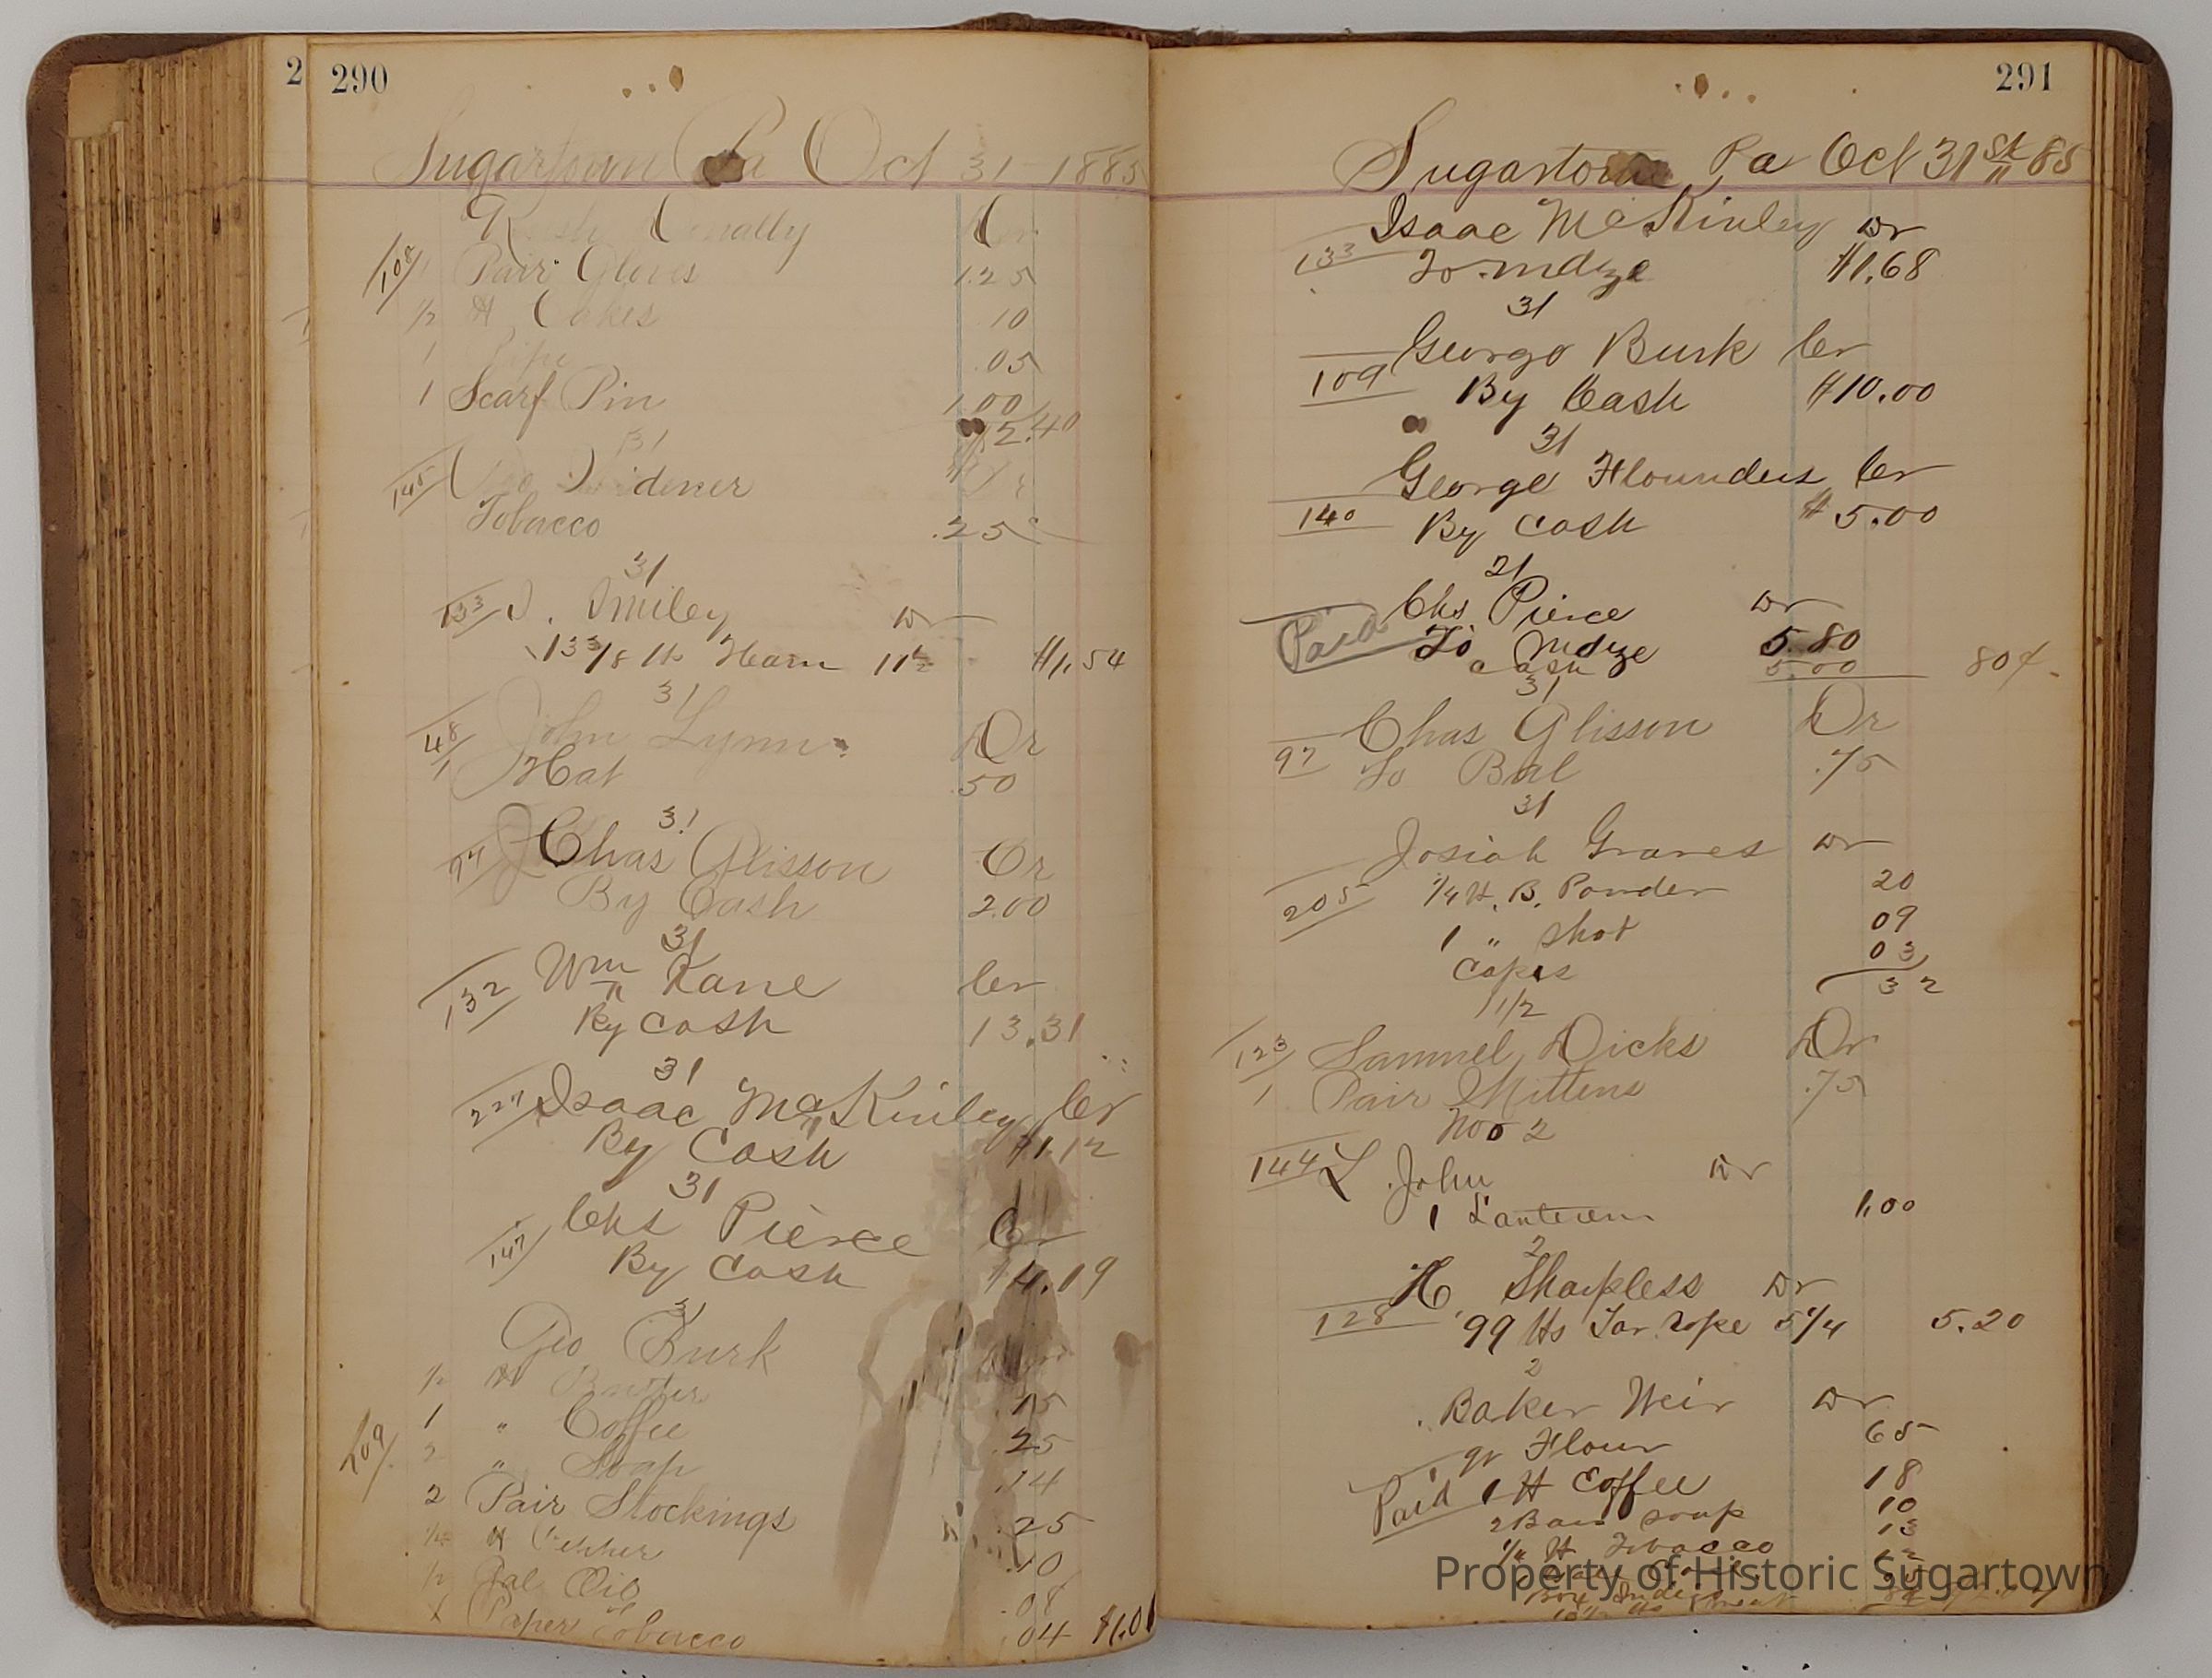 2
290
Sugartown Pa Oct 31 1885
108
Pair Gloves 1.25
1/2 # Cakes 10
1 Pipe .05
1 Scarf Pin 1.00
$2.40
31
145 Dr
Tobacco .25
31
133 J. Smiley Dr
13 3/8 lb Ham 11 1/2 $1.54
31
48 John Lynn Dr
1 Hat .50
31
97 Chas Glisson Cr
By Cash 2.00
31
132 Wm Kane Cr
By Cash 13.31
31
227 Isaac McKinley Cr
By Cash $1.12
31
147 Chs Pierce Cr
By Cash $4.19
31
Geo Burk
1/2 # Butter .15
1 " Coffee .25
109 2 " Soap .14
2 Pair Stockings .25
1/4 # Pepper .10
1/2 Gal Oil .08
1 Paper Tobacco .04 $1.01
291
Sugartown Pa Oct 31st 85
Isaac McKinley Dr
133 To mdze $1.68
31
George Burk Cr
109 By Cash $10.00
31
George Flounders Cr
140 By Cash $5.00
31
Chs Pierce Dr
Paid To Mdze 5.80
cash 5.00 80¢
31
Chas Glisson Dr
97 To Bal .75
31
Josiah Graves Dr
205 1/4 #. B. Powder 20
1 " Shot 09
Caps 03
32
11/2
123 Samuel Dicks Dr
1 Pair Mittens .75
Nov 2
144 L. John Dr
1 Lantern 1.00
2
H Sharpless Dr
128 99 lbs Tar Rope 5 1/4 5.20
2
Baker Weir Dr
qr Flour 65
Paid 1 # Coffee 18
2 Bars Soap 10
1/4 # Tobacco 13
Property of Historic Sugartown